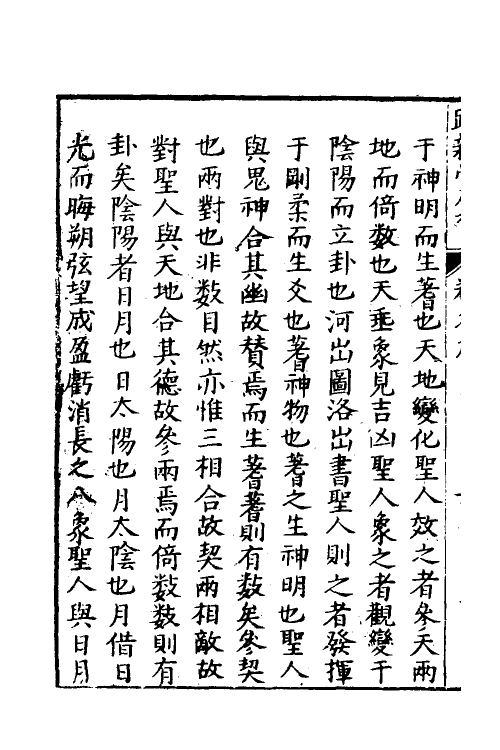 于神明而生蓍也天地變化聖人效之者參天兩
地而倚數也天垂象見吉凶聖人象之者觀變于
陰陽而立卦也河出圖洛出書聖人則之者發揮
于剛柔而生爻也蓍神物也蓍之生神明也聖人
與鬼神合其幽故贊焉而生蓍蓍則有數矣參契
也兩對也非數自然亦惟三相合故契兩相敵故
對聖人與天地合其德故參兩焉而倚數數則有
卦矣陰陽者日月也日太陽也月太陰也月借日
光而晦朔弦望成盈虧消長之八象聖人與日月